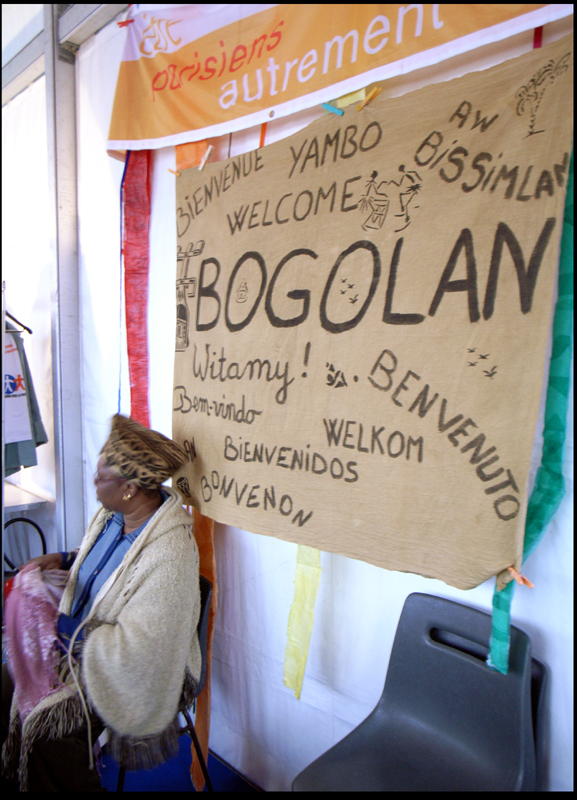 parisiens
autrement
BIENVENUE YAMBO
AW
BISSIMLAH
WELCOME
BOGOLAN
Witamy!
BENVENUTO
Bem-vindo
WELKOM
BIENVENIDOS
BONVENON